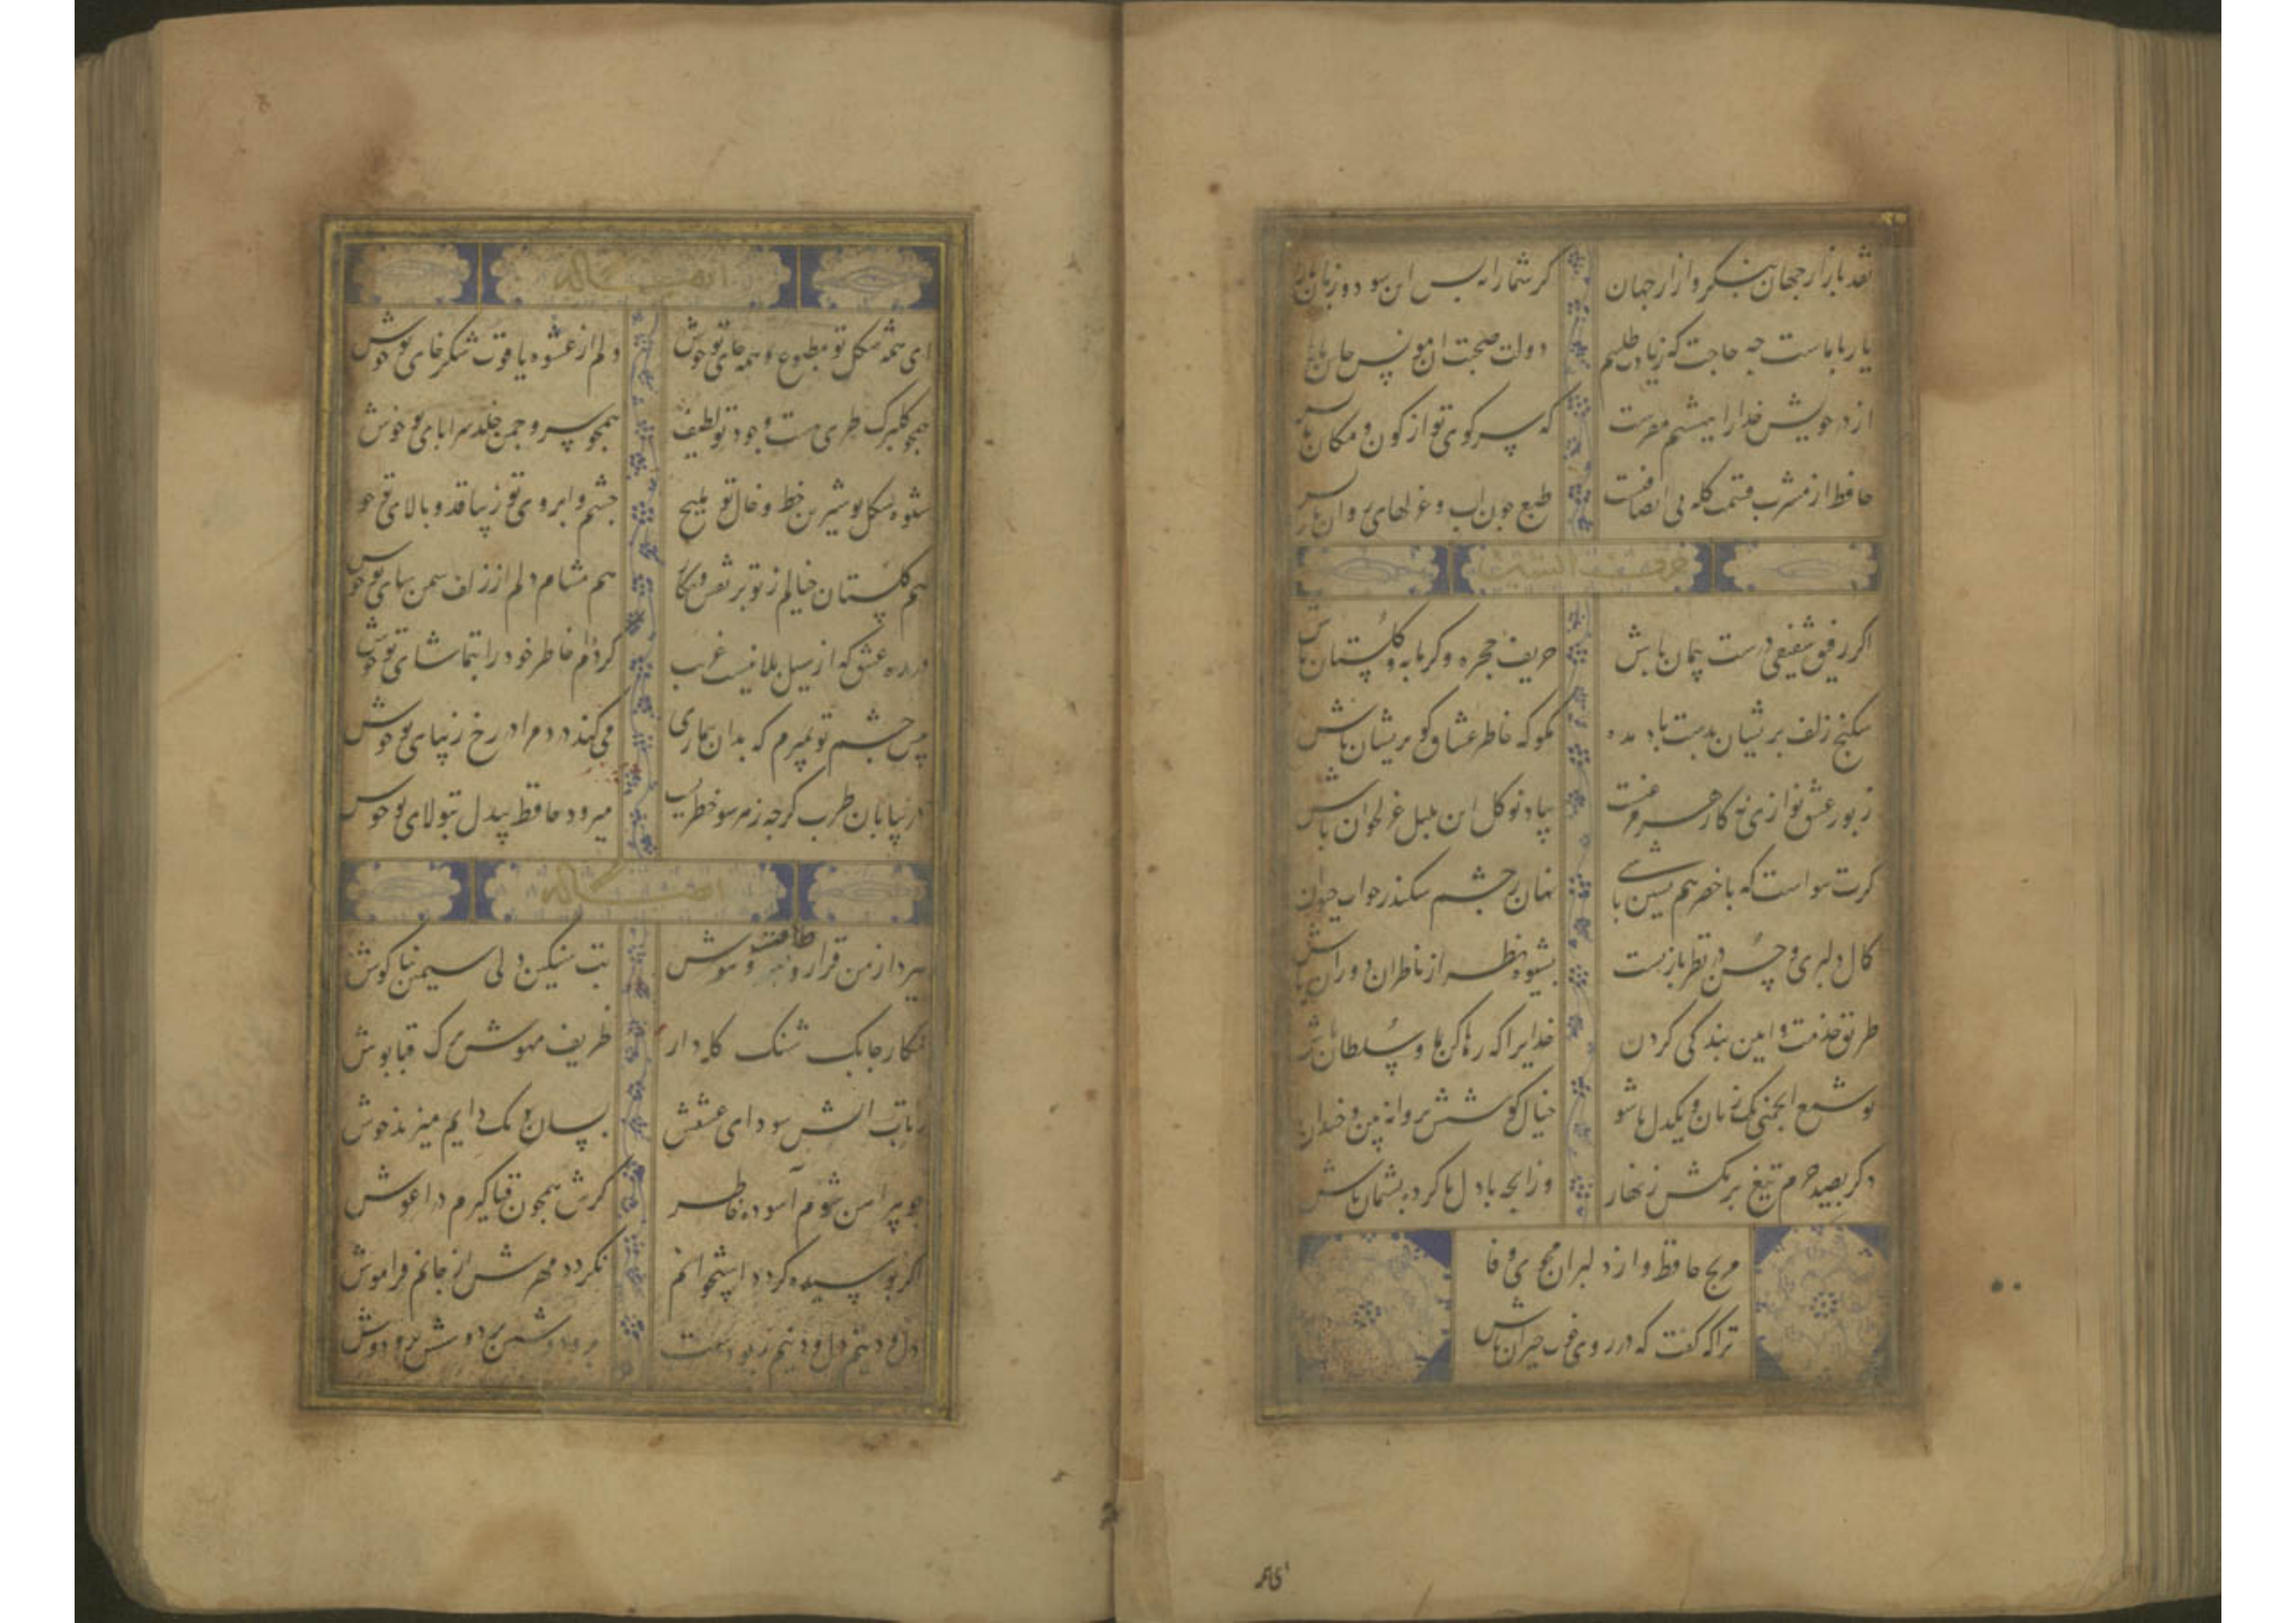 نقد بازار جهان بنگر و ازار جهان
گر شما را نه بس این سود و زیان ما را بس
یار با ماست چه حاجت که زیادت طلبیم
دولت صحبت ان مونس جان ما را بس
از در خویش خدا را ببهشتم مفرست
که سر کوی تو از کون و مکان ما را بس
حافظ از مشرب قسمت گله بی انصافیست
طبع چون اب و غزلهای روان ما را بس
اگر رفیق شفیقی درست پیمان باش
حریف حجره و گرمابه و گلستان باش
شکنج زلف پریشان بدست باد مده
مگو که خاطر عشاق گو پریشان باش
زبور عشق نوازی نه کار هر مرغیست
بیا و نوگل این بلبل غزلخوان باش
گرت هواست که با خضر هم نشین باشی
نهان ز چشم سکندر چو اب حیوان باش
کمال دلبری و حسن در نظر بازیست
بشیوه نظر از ناظران دوران باش
طریق خدمت و ایین بندگی کردن
خدایرا که رها کن بما و سلطان باش
تو شمع انجمنی یک زبان و یکدل شو
خیال کوشش پروانه بین و خندان باش
دگر بصید حرم تیغ بر مکش زنهار
وز انچه با دل ما کرده پشیمان باش
مرنج حافظ و از دلبران مجوی وفا
ترا که گفت که در روی خوب حیران باش
ای همه شکل تو مطبوع و همه جای تو خوش
دلم از عشوه یاقوت شکرخای تو خوش
همچو گلبرگ طری هست وجود تو لطیف
همچو سرو چمن خلد سراپای تو خوش
شیوه شکل تو شیرین خط و خال تو ملیح
چشم و ابروی تو زیبا قد و بالای تو خوش
هم گلستان خیالم ز تو پر نقش و نگار
هم مشام دلم از زلف سمن سای تو خوش
در ره عشق که از سیل بلا نیست غریب
کرده‌ام خاطر خود را بتماشای تو خوش
پیش چشم تو بمیرم که بدان بیماری
می‌کند درد مرا در رخ زیبای تو خوش
در بیابان طرب گرچه ز هر سو خطریست
میرود حافظ بیدل بتولای تو خوش
ببرد از من قرار و طاقت و هوش
بت سنگین دلی سیمین بناگوش
نگار چابک شنگ کله دار
ظریف مهوش ترک قباپوش
ز تاب اتش سودای عشقش
بسان دیک دایم میزند جوش
چو پیراهن شوم آسوده خاطر
گرش همچون قبا گیرم در اغوش
اگر پوسیده گردد استخوانم
نگردد مهرش از جانم فراموش
دل و دینم دل و دینم ببردست
بر و دوشش بر و دوشش بر و دوش